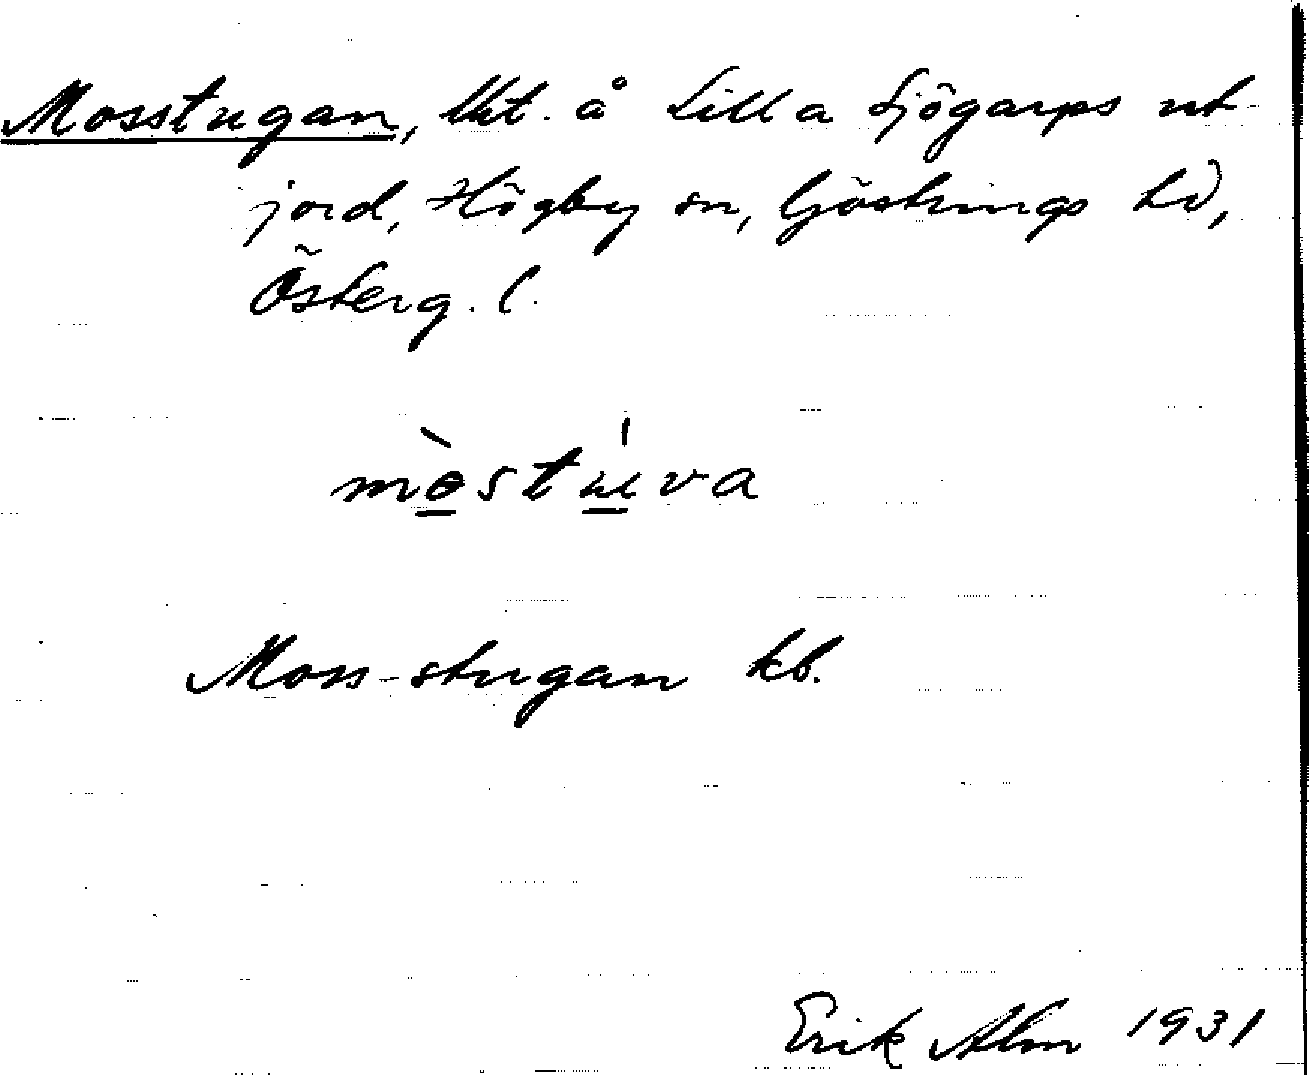 Mosstugan, lht. å Lilla Sjögarps ut-
jord, Högby sn, Göstrings hd,
Österg. l.
mòstu̍va
Moss-stugan kb.
Erik Alm 1931